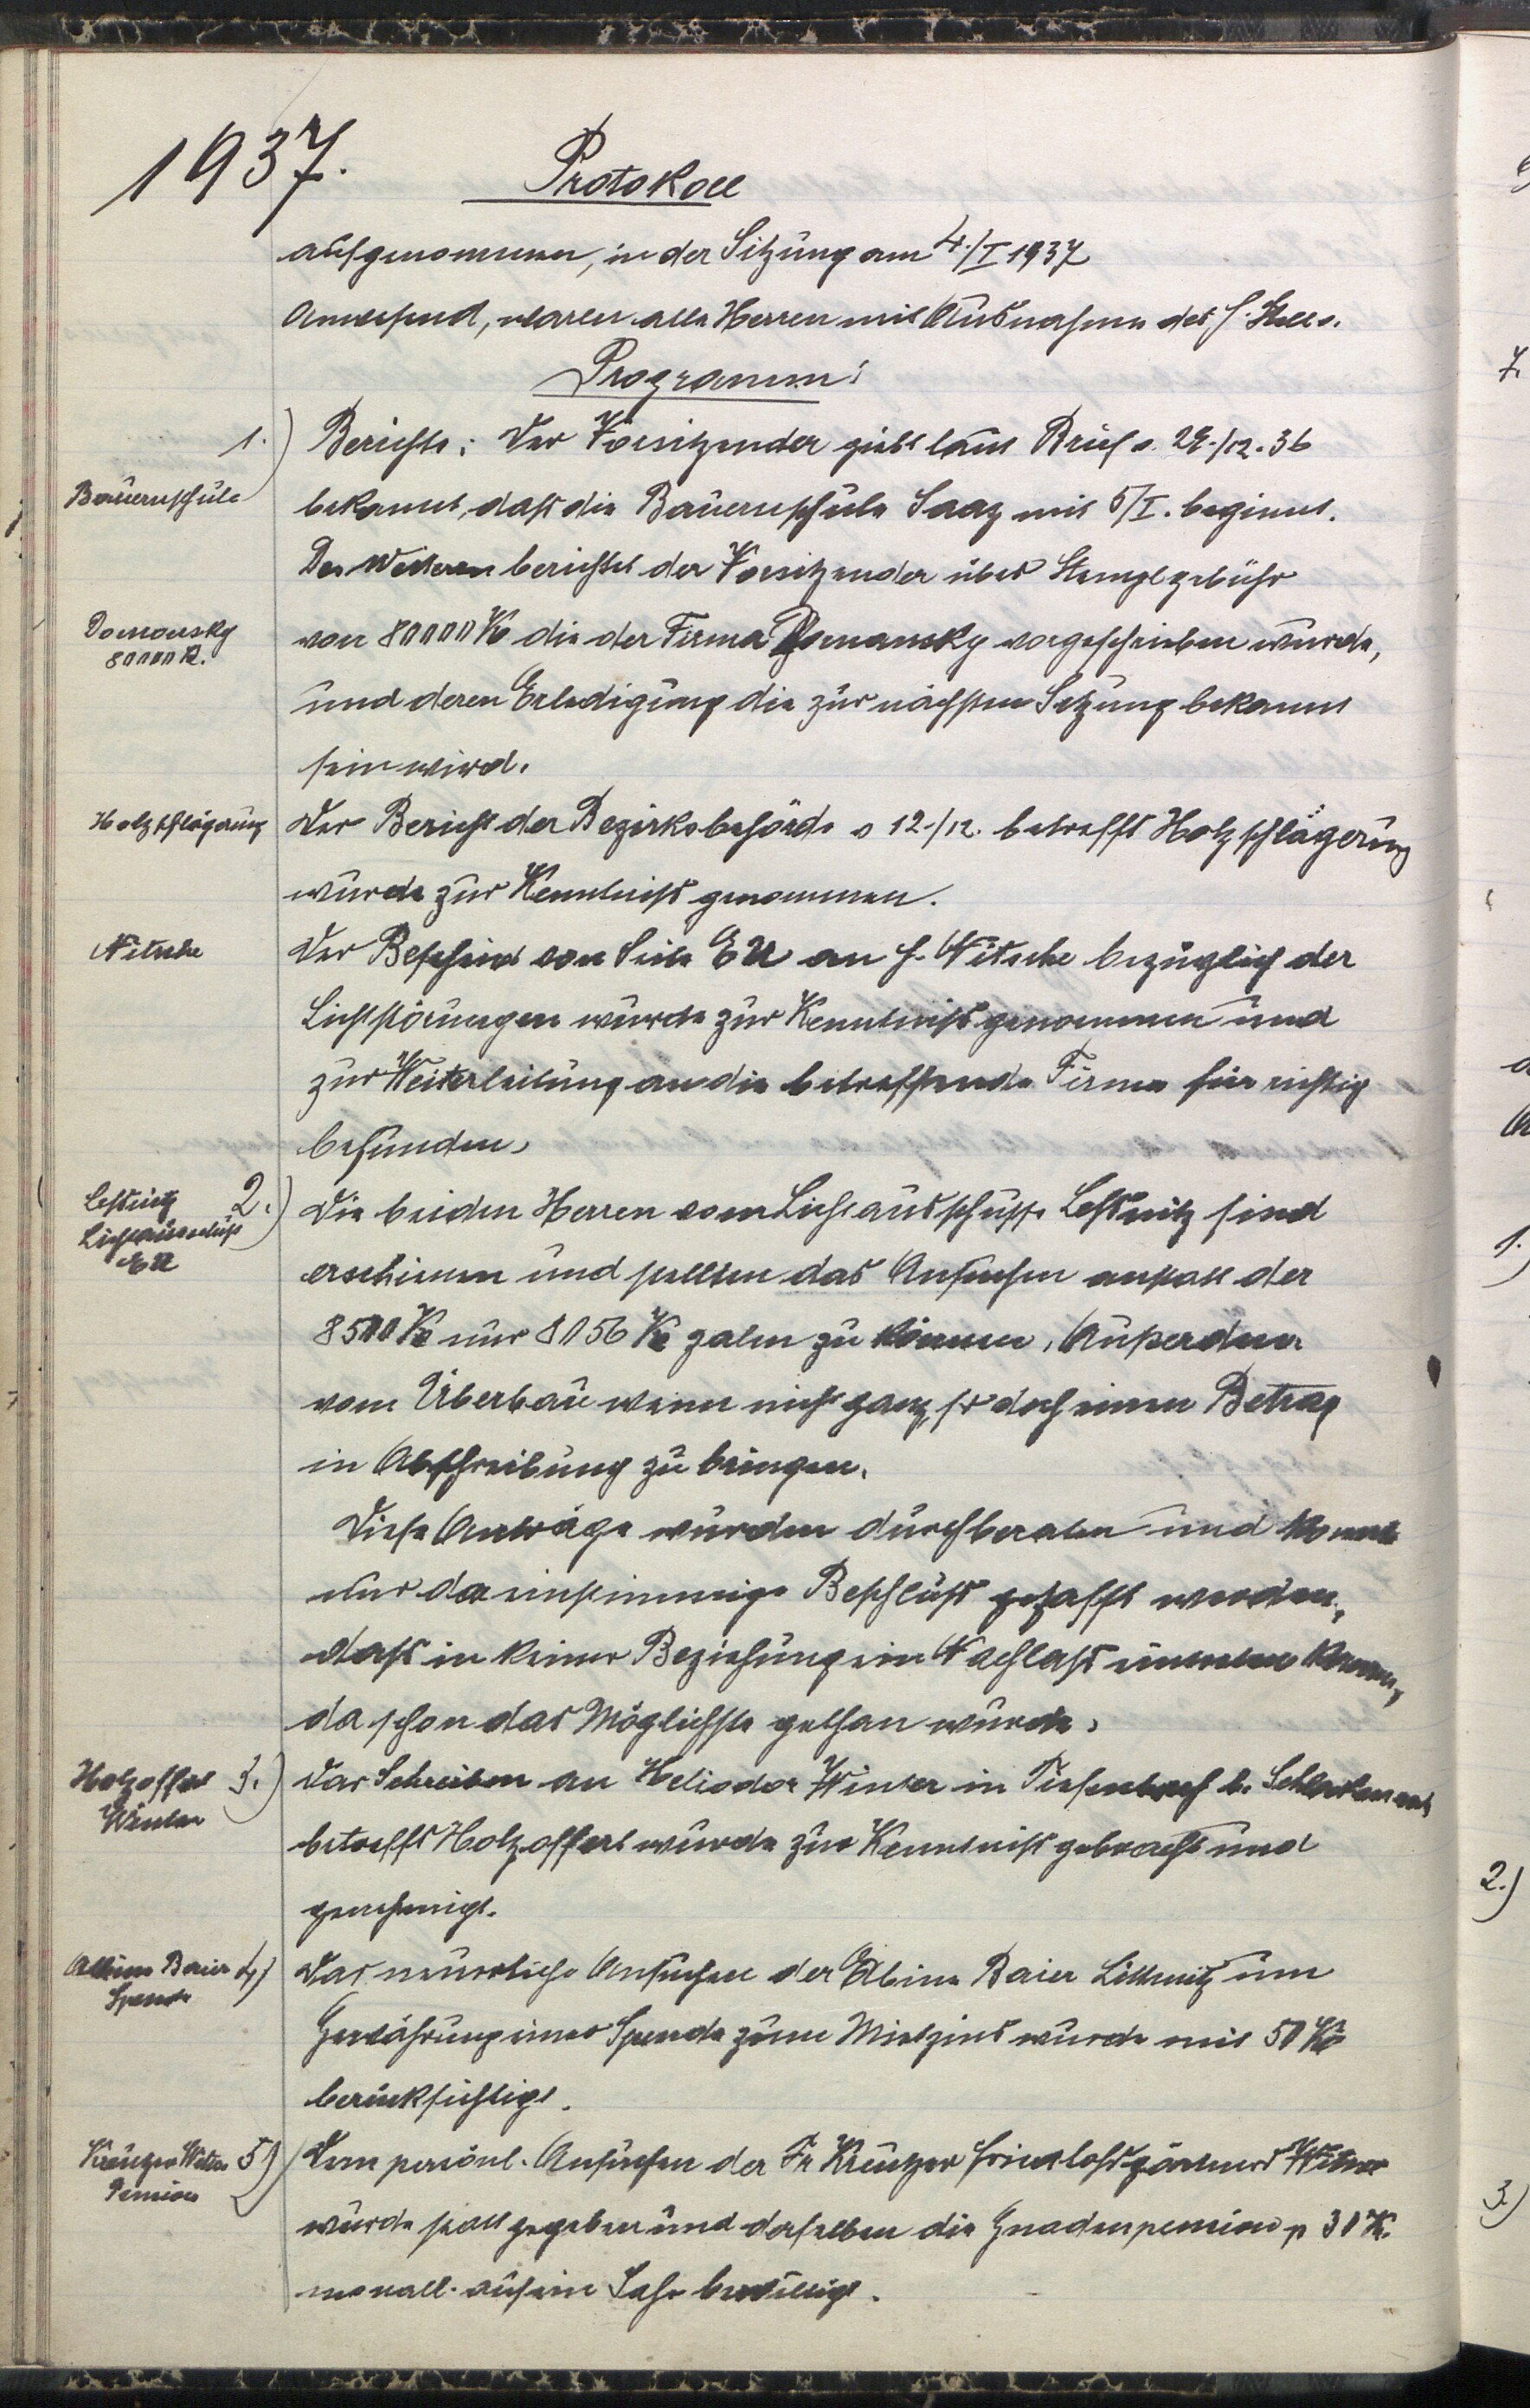 1937.
Protokoll
aufgenommen, in der Sitzung am 4./I 1937
Anwesend, waren alle Herren mit Ausnahme des H.
Programm:
1.) Berichte: Der Vorsitzender giebt laut Brief v. 29./12. 36
Bauernschule
bekannt, dass die Bauernschule Saaz mit 5/I. beginnt.
Des Weiteren berichtet der Vorsitzender über Stempelgebühr
Domansky
80000 K.
von 80000 Kč die der Firma Domansky vorgeschrieben wurde,
und deren Erledigung die zur nächsten Sitzung bekannt
sein wird.
Holzschlägerung
Der Bericht der Bezirksbehörde v 12./12. betrefft Holzschlägerung
wurde zur Kenntniss genommen.
Nitsche
Der Bescheid von Seite EU an H. Nitsche bezüglich der
Lichtstörungen wurde zur Kenntniss genommen und
zur Weiterleitung an die betreffende Firma für richtig
befunden.
Lichtausschuss
EU
2.) Die beiden Herren vom Lichtausschusse sind
erschienen und stellten das Ansuchen anstatt der
8500 Kč nur 8056 Kč zalen zu können, Ausserdem
vom Überbau wenn nicht ganz, so doch einen Betrag
in Abschreibung zu bringen.
Diese Anträge wurden durchberaten und konnte
nur der einstimmige Beschluss gefasst werden,
dass in keiner Beziehung ein Nachlass
da schon das Möglichste gethan wurde.
Holzoffert
Winter
3.) Das Schreiben an Heliodor Winter in Tiefenbach b.
betrefft Holzoffert wurde zur Kenntniss gebracht und
genehmigt.
Albine Baier
Spende
4) Das Ansuchen der Albine Baier um
Gewährung einer Spende zum Mietzins wurde mit 50 Kč
berücksichtigt.
Kreuzer Witwe
Pension
5) Dem persönl. Ansuchen der Fr Kreuzer Witwe
wurde statt gegeben und derselben die Gnadenpension p 30 K.
monatl. auf ein Jahr bewilligt.
7.
1.)
2.)
3.)